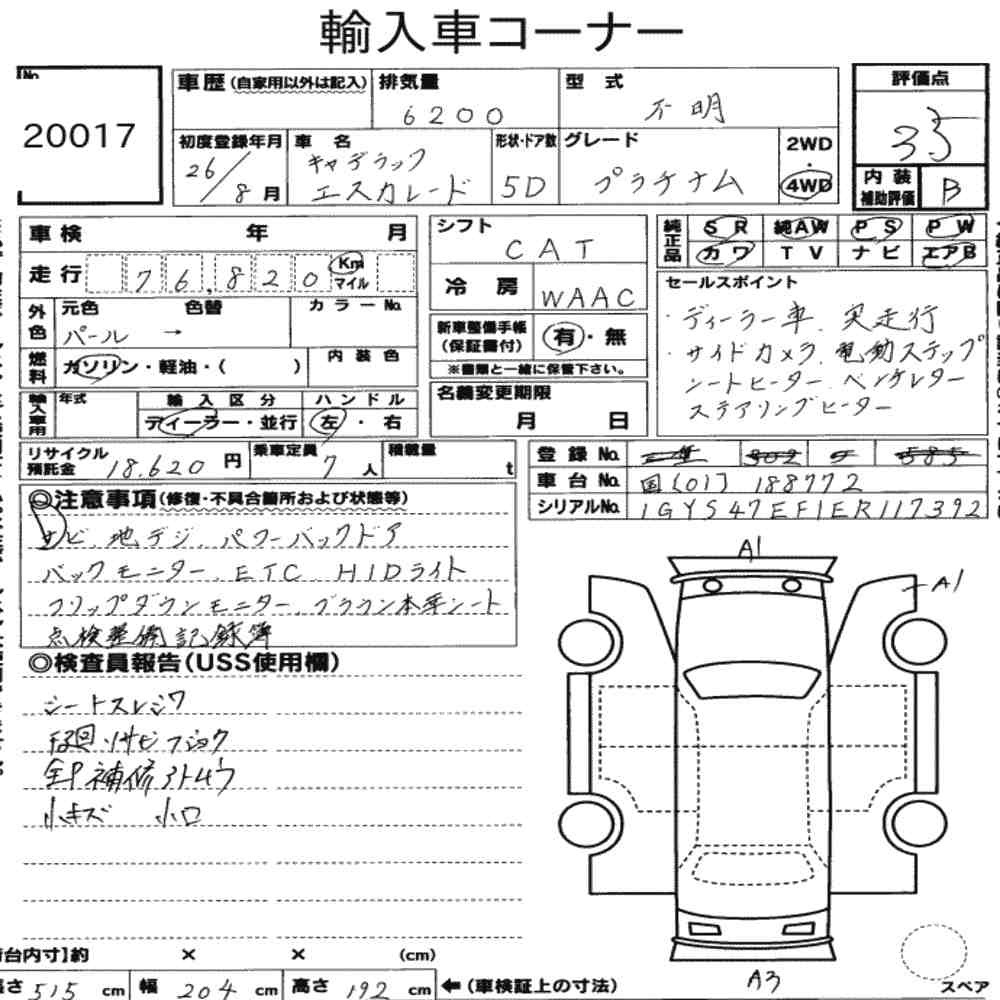 輸入車コーナー
No.
20017
車歴(自家用以外は記入)
排気量
6200
型式
不明
評価点
3.5
初度登録年月
26/8月
車名
キャデラック
エスカレード
形状・ドア数
5D
グレード
プラチナム
2WD
・
4WD
内装
補助評価
B
車検 年 月
走行 76,820 Km
マイル
シフト
CAT
冷房
WAAC
純正品
SR 純AW PS PW
カワ TV ナビ エアB
外色
元色 色替
パール →
カラーNo.
燃料
ガソリン・軽油・( )
内装色
新車整備手帳
(保証書付)
有・無
※書類と一緒に保管下さい。
名義変更期限
月 日
セールスポイント
・ディーラー車、実走行
・サイドカメラ、電動ステップ
シートヒーター、ベンチレター
ステアリングヒーター
輸入車用
年式
輸入区分
ディーラー・並行
ハンドル
左・右
リサイクル
預託金
18.620円
乗車定員
7人
積載量
t
登録No.
車台No.
国[01]188772
シリアルNo.
1GYS47EF1ER117392
◎注意事項(修復・不具合箇所および状態等)
ナビ、地デジ、パワーバックドア
バックモニター、ETC HIDライト
フリップダウンモニター、ブラウン本革シート
点検整備記録簿
◎検査員報告(USS使用欄)
シートスレシワ
下廻リサビ
小キズ
A1
A1
A3
荷台内寸]約 × × (cm)
長さ515cm 幅204cm 高さ192cm ←(車検証上の寸法)
スペア